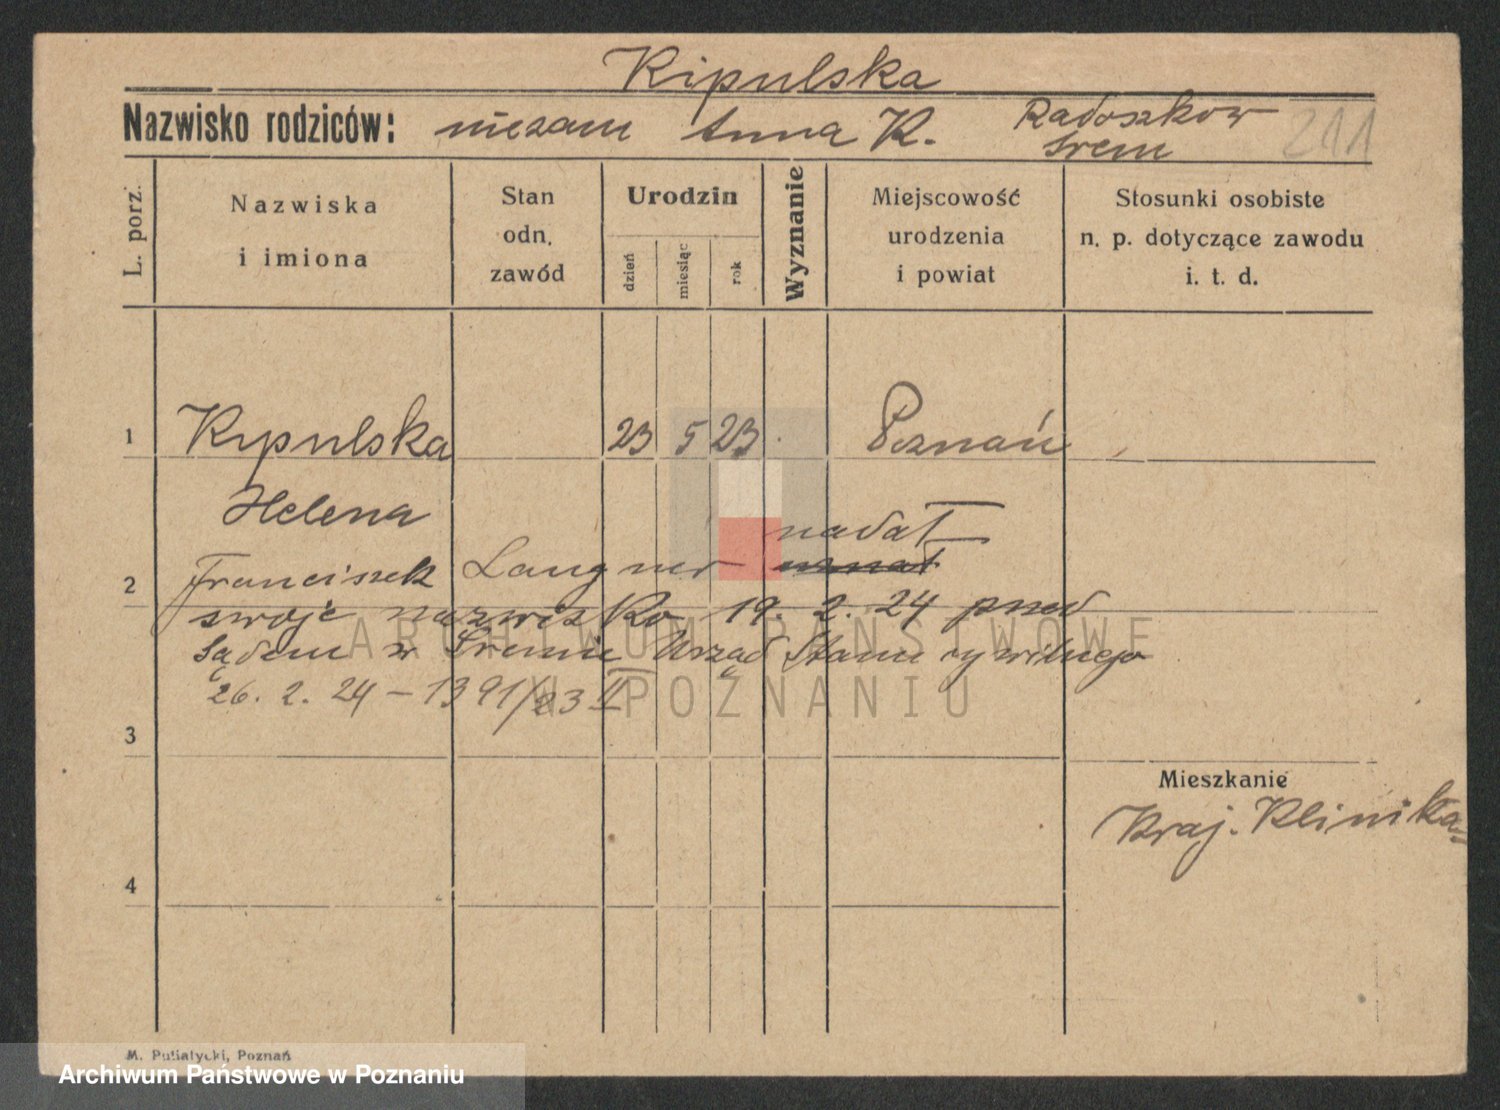 Kipulska
Nazwisko rodziców: niezam Anna K. Radoszkow
Srem
211
L. porz.
Nazwiska
i imiona
Stan
odn.
zawód
Urodzin
dzień
miesiąc
rok
Wyznanie
Miejscowość
urodzenia
i powiat
Stosunki osobiste
n. p. dotyczące zawodu
i. t. d.
1 Kypulska 23 5 23 Poznań
Helena
nadał
2 Franciszek Langner uznał
swoje nazwisko 19. 2. 24 przed
Sądem w Śremie Urząd Stanu cywilnego
26. 2. 24 – 1391/23 II
3
Mieszkanie
Kraj. Klinika
4
ARCHIWUM PAŃSTWOWE
W POZNANIU
M. Putiatycki, Poznań
Archiwum Państwowe w Poznaniu